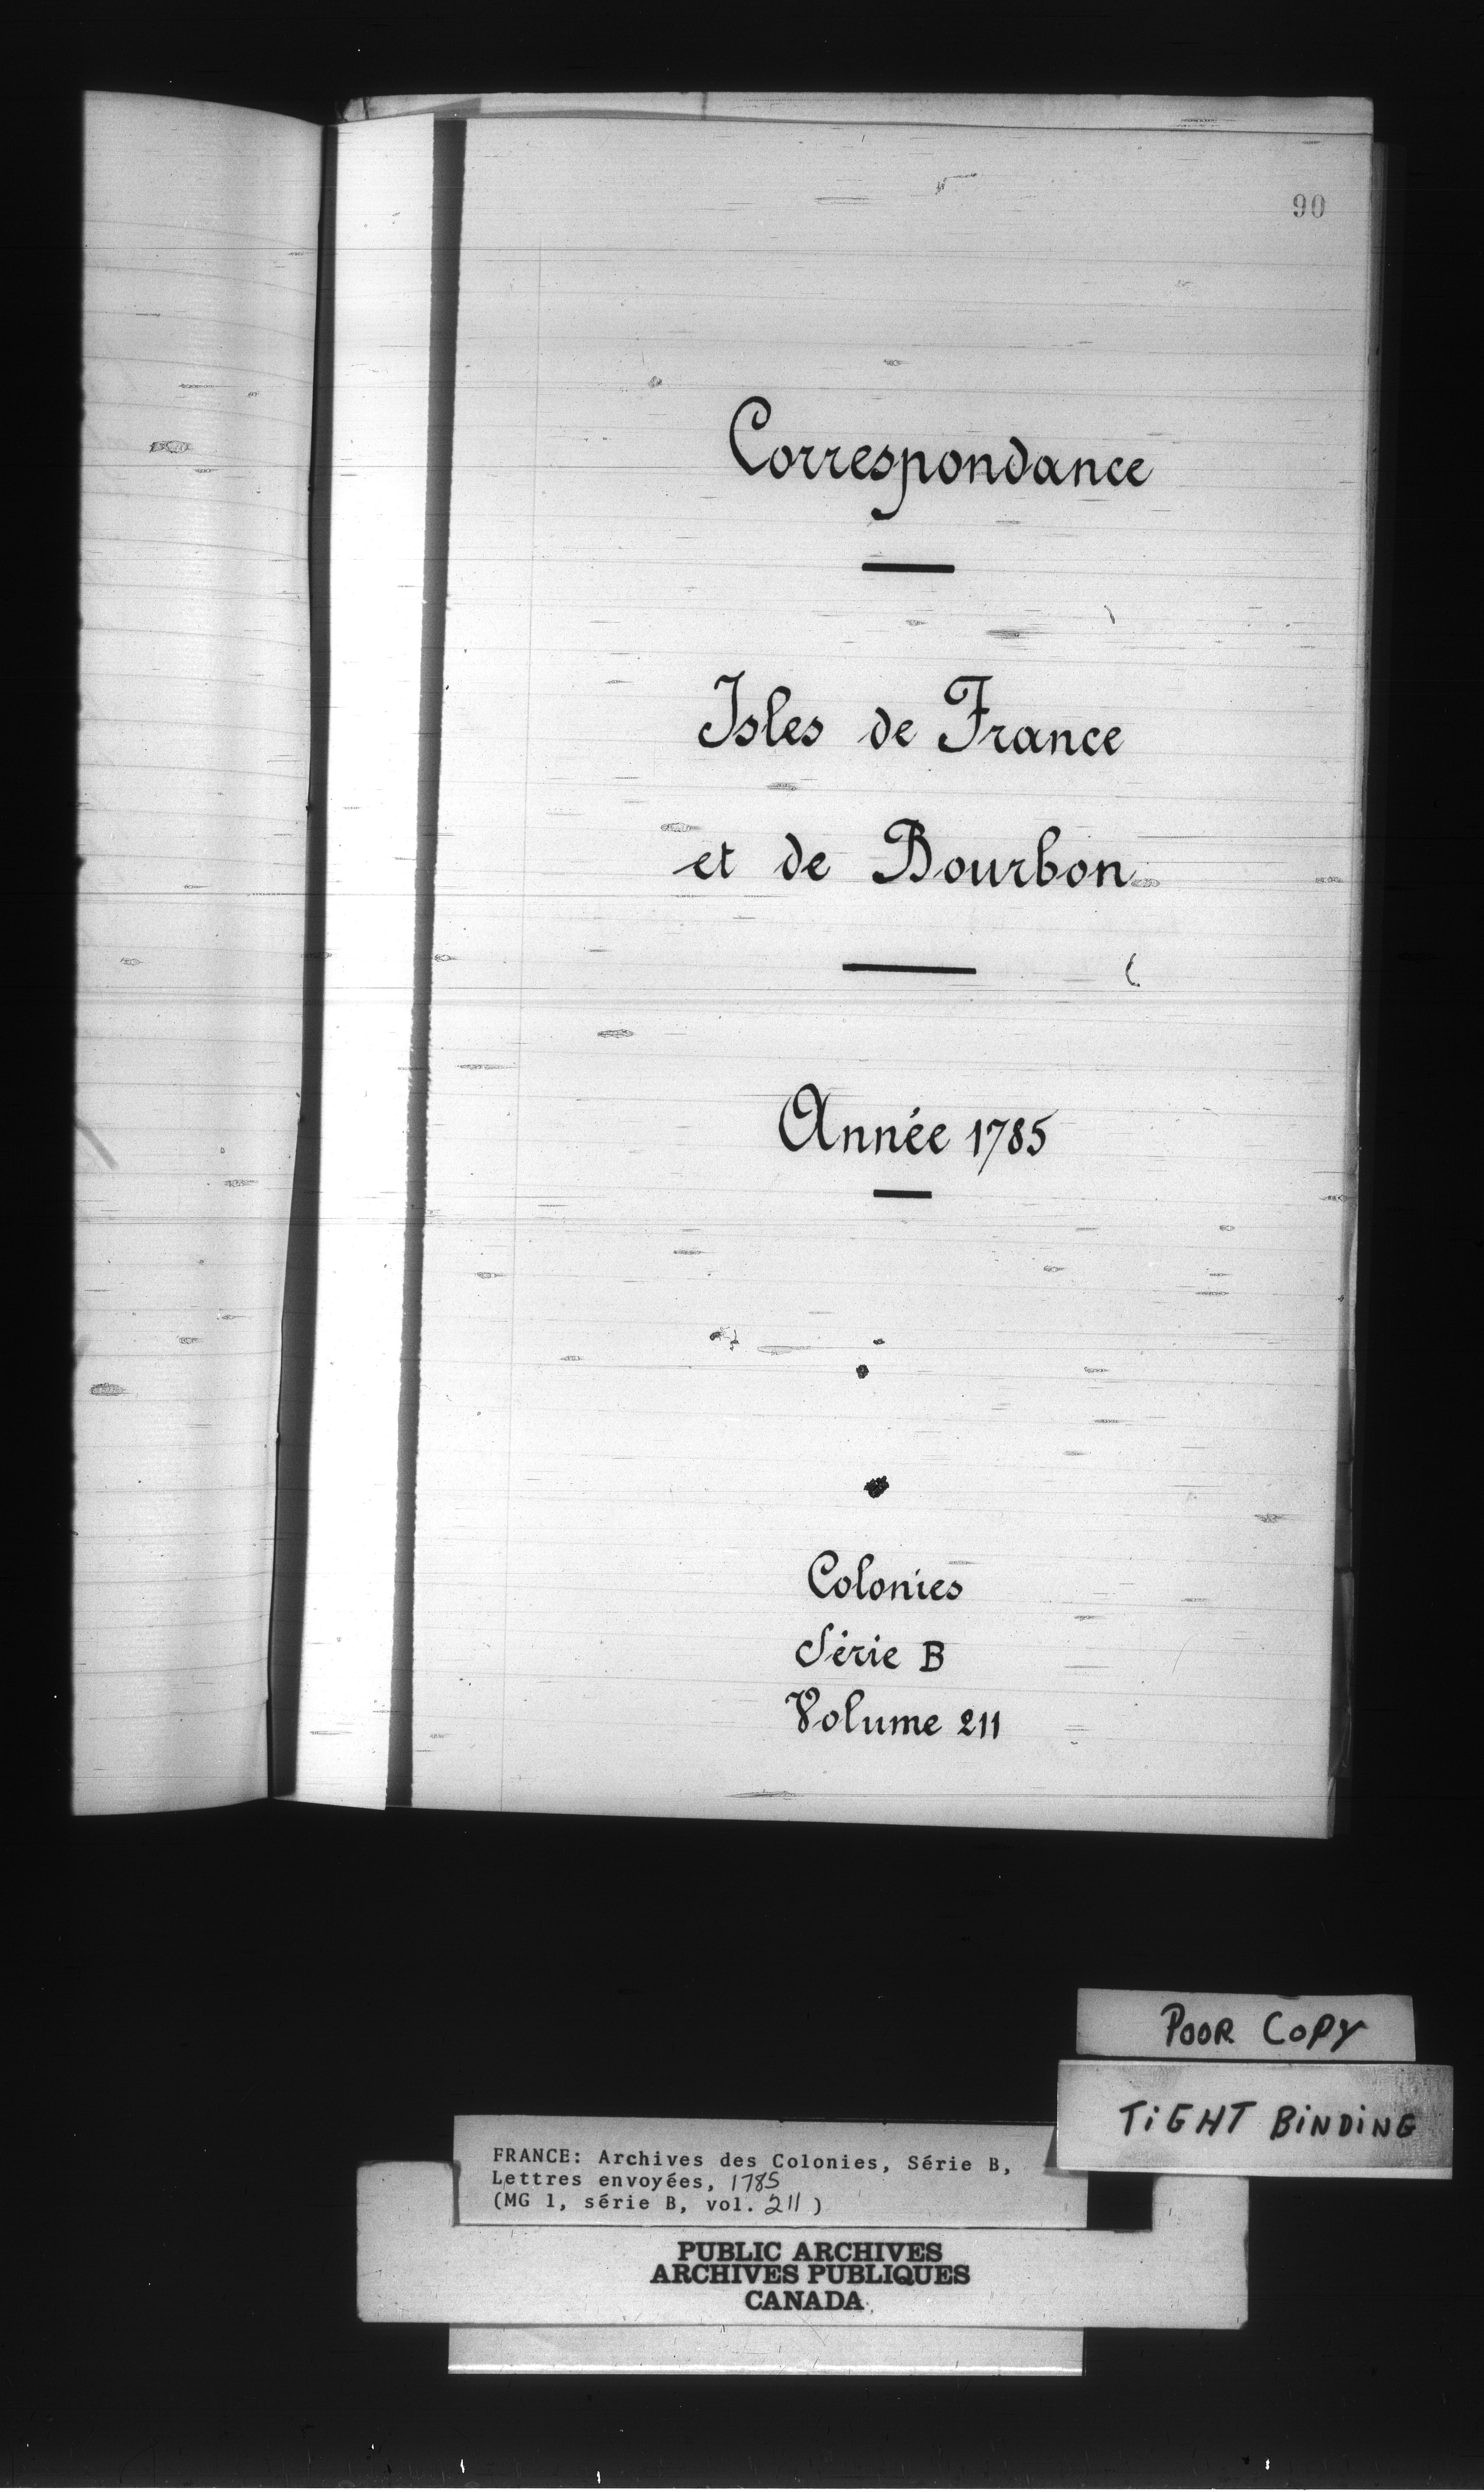 90
Correspondance
Isles de France
et de Bourbon
Année 1785
Colonies
Série B
Volume 211
POOR COPY
TiGHT BiNDiNG
FRANCE: Archives des Colonies, Série B,
Lettres envoyées, 1785
(MG 1, série B, vol. 211)
PUBLIC ARCHIVES
ARCHIVES PUBLIQUES
CANADA